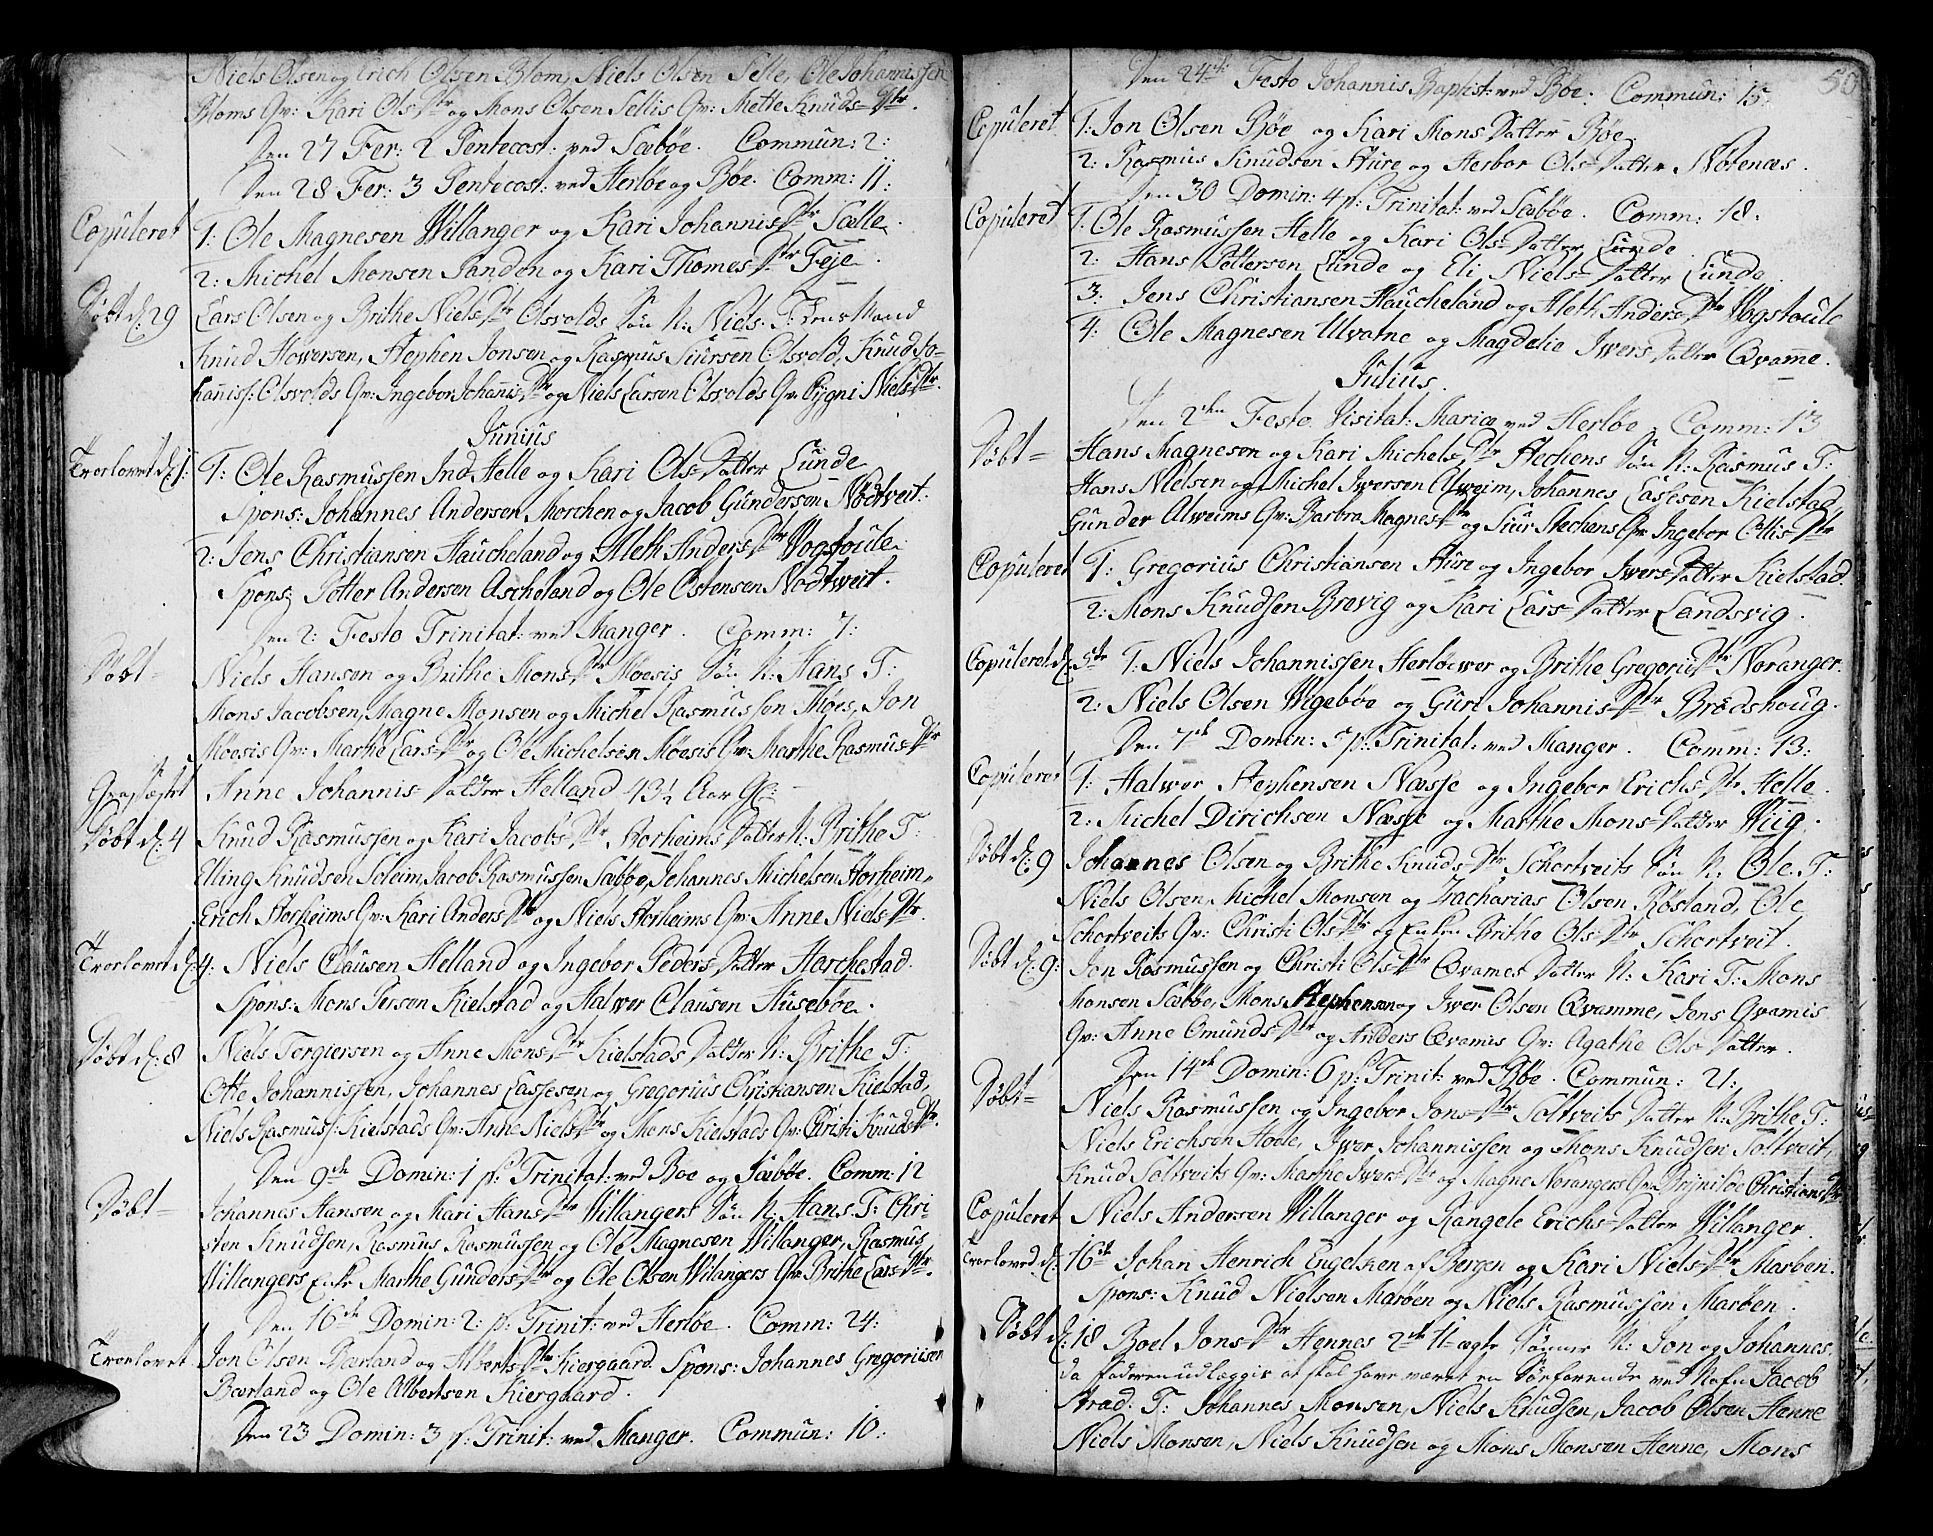 Niels Olsen og Erich Olsen Blom, Niels Olsen Selle, Ole Johannissen
Bloms Qv: Kari Ols Dtr og Mons Olsen Sellis Qv: Mette Knuds Dtr.
Den 27 Fer: 2 Pentecost: ved Sæbøe. Commun: 2:
Den 28 Fer: 3 Pentecost: ved Herløe og Bøe. Comm: 11:
Copuleret 1: Ole Magnesen Willanger og Kari Johannis Dtr Sælle.
2: Michel Monsen Sanden og Kari Thomes Dtr Feje.
Døbt d: 29 Lars Olsen og Brithe Niels Dtr Olsvolds Søn N: Niels. T:
Knud Howersen, Stephen Jonsen og Rasmus Siursen Olsvold, Knud Jo-
hanniss: Olsvolds Qv: Ingebor Johanis Dtr og Niels Larsen Olsvolds Qv: Sygni Niels Dtr
Junius
Trorlovet d: 1: 1: Ole Rasmussen Ind Helle og Kari Ols Datter Lunde
Spons: Johannes Andersen Morchen og Jacob Gundersen Nødtveit:
2: Jens Christiansen Haucheland og Aleth Anders Dtr Wogstoule.
Spons: Potter Andersen Ascheland og Ole Ostensen Nødtweit.
Den 2: Festo Trinitat: ved Manger. Comm: 7:
Døbt Niels Hansen og Brithe Mons Dtr Møesis Søn N: Hans T:
Mons Jacobsen, Magne Monsen og Michel Rasmussen Møes, Jon
Møesis Qv: Marthe Lars Dtr og Ole Michelsen Møesis Qv: Marthe Rasmus Dtr
Græsfæstet Anne Johannis Datter Helland 43½ Aar Gl:
Døbt d: 4 Knud Rasmussen og Kari Jacobs Dtr Horheims Datter N: Brithe T:
Elling Knudsen Soleim, Jacob Rasmussen Sæbøe, Johannes Michelsen Horheim,
Erich Horheims Qv: Kari Anders Dtr og Niels Horheims Qv: Anne Niels Dtr.
Trorlovet d: 4: Niels Clausen Helland og Ingebor Peders Datter Harchestad.
Spons: Mons Persen Kielstad og Halwer Clausen Husebøe.
Døbt d: 8 Niels Torgiersen og Anne Mons Dtr Kielstads Datter N: Brithe T:
Otte Johannissen, Johannes Lassesen og Gregorius Christiansen Kielstad,
Niels Rasmuss: Kielstads Qv: Anne Niels Dtr og Mons Kielstads Qv: Christi Knuds Dtr.
Den 9de Domin: 1 p: Trinitat: ved Boe og Sæbøe. Comm: 12
Døbt Johannes Hansen og Mari Hans Dtr Willangers Søn N: Hans T: Chri-
sten Knudsen, Rasmus Rasmussen og Ole Magnesen Willanger, Rasmus
Willangers Enke Marthe Gunders Dtr og Ole Olsen Wilangers Qv: Brithe Lars Dtr.
Den 16de Domin: 2: p: Trinit: ved Herløe. Comm: 24:
Trorlovet Jon Olsen Bærland og Alberts Dtr Kiergaard. Spons: Johannes Gregoriisen
Bærland og Ole Albertsen Kiergaard.
Den 23 Domin: 3 p: Trinit: ved Manger. Commun: 10:
50
Den 24de Festo Johannis Baptist: ved Bøe. Commun: 15.
Copuleret 1: Jon Olsen Bøe og Kari Mons Datter Bøe
2: Rasmus Knudsen Hure og Herbor Ols Datter Nøtenæs.
Den 30 Domin: 4 p: Trinitat: ved Sæbøe. Comm: 18.
Copuleret 1: Ole Rasmussen Helle og Kari Ols Datter Lunde
2: Hans Pottersen Lunde og Eli Niels Datter Lunde.
3: Jens Christiansen Haucheland og Aleth Anders Dtr Wogstoule
4: Ole Magnesen Ulvatne og Magdelie Iwers Datter Qvamme.
Julius.
Den 2den Festo Visitat: Mariæ ved Herløe Comm: 13
Døbt Hans Magnesen og Kari Michels Dtr Stechens Søn N: Rasmus T:
Hans Nielsen og Michel Iwersen Alweim, Johannes Lassesen Kielstad,
Gunder Alweims Qv: Barbra Magnes Dtr og Siur Stechens Qv: Ingebor Ottis Dtr
Copuleret 1: Gregorius Christiansen Hure og Ingebor Iwers Datter Kielstad.
2: Mons Knudsen Brevig og Kari Lars Datter Landsvig.
Copuleret d: 5te 1: Niels Johannissen Herløewer og Brithe Gregorii Dtr Noranger.
2: Niels Olsen Wigebøe og Guri Johannis Dtr Brødshoug.
Den 7de Domin: 5 p: Trinitat: ved Manger. Comm: 13:
Copuleret 1: Halwor Stephensen Næsse og Ingebor Erichs Dtr Helle.
2: Michel Dirichsen Næsse og Marthe Mons Datter Wiig.
Døbt d: 9 Johannes Olsen og Brithe Knuds Dtr Schortveits Søn N: Ole. T:
Niels Olsen, Michel Monsen og Zacharias Olsen Røsland, Ole
Schortveits Qv: Christi Ols Dtr og Enken Brithe Ols Dtr Schortveit.
Døbt d: 9: Jon Rasmussen og Christi Ols Dtr Qvames Datter N: Kari T: Mons
Monsen Sæbøe, Mons Stephensen og Iwer Olsen Qvamme, Jens Qvamis
Qv: Anne Omunds Dtr og Anders Qvamis Qv: Agathe Ols Datter.
Den 14de Domin: 6 p: Trinit: ved Bøe. Commun: 21:
Døbt Niels Rasmussen og Ingebor Jons Dtr Toltveits Datter N: Brithe T:
Niels Erichsen Hode, Iwer Johannissen og Mons Knudsen Toltveit,
Knud Toltveits Qv: Marthe Iwers Dtr og Magne Norangers Qv: Brynilde Christians Dtr
Copuleret Niels Andersen Willanger og Rangele Erichs Datter Willanger.
Trorloved d: 16de Johan Henrich Engelken af Bergen og Kari Niels Dtr Marøen.
Spons: Knud Nielsen Marøen og Niels Rasmussen Marøen.
Døbt d: 18 Boel Jons Dtr Hennes 2de U-ægte Sønner N: Jon og Johannes.
da faderen udlægges at skal have været en Søefarende ved Nafn Jacob
Strad. T: Johannes Monsen, Niels Knudsen, Jacob Olsen Henne
Niels Monsen, Niels Knudsen og Mons Monsen Henne, Mons